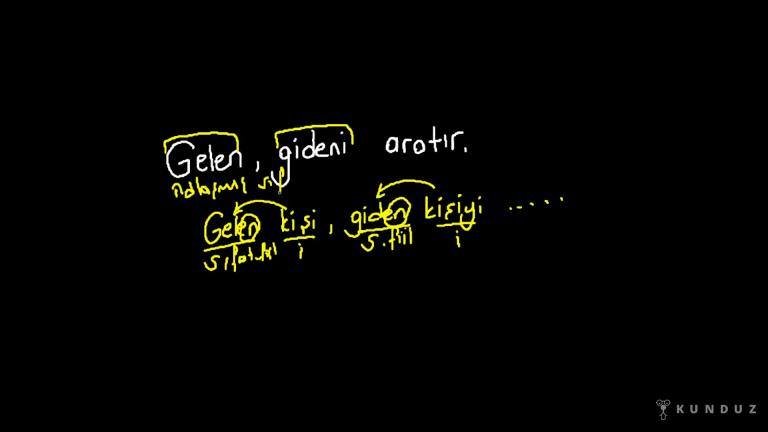 Gelen, gideni aratır.
adlaşmış sıf
Gelen kişi, giden kişiyi .....
sıfat.fiil i s.fiil i
KUNDUZ